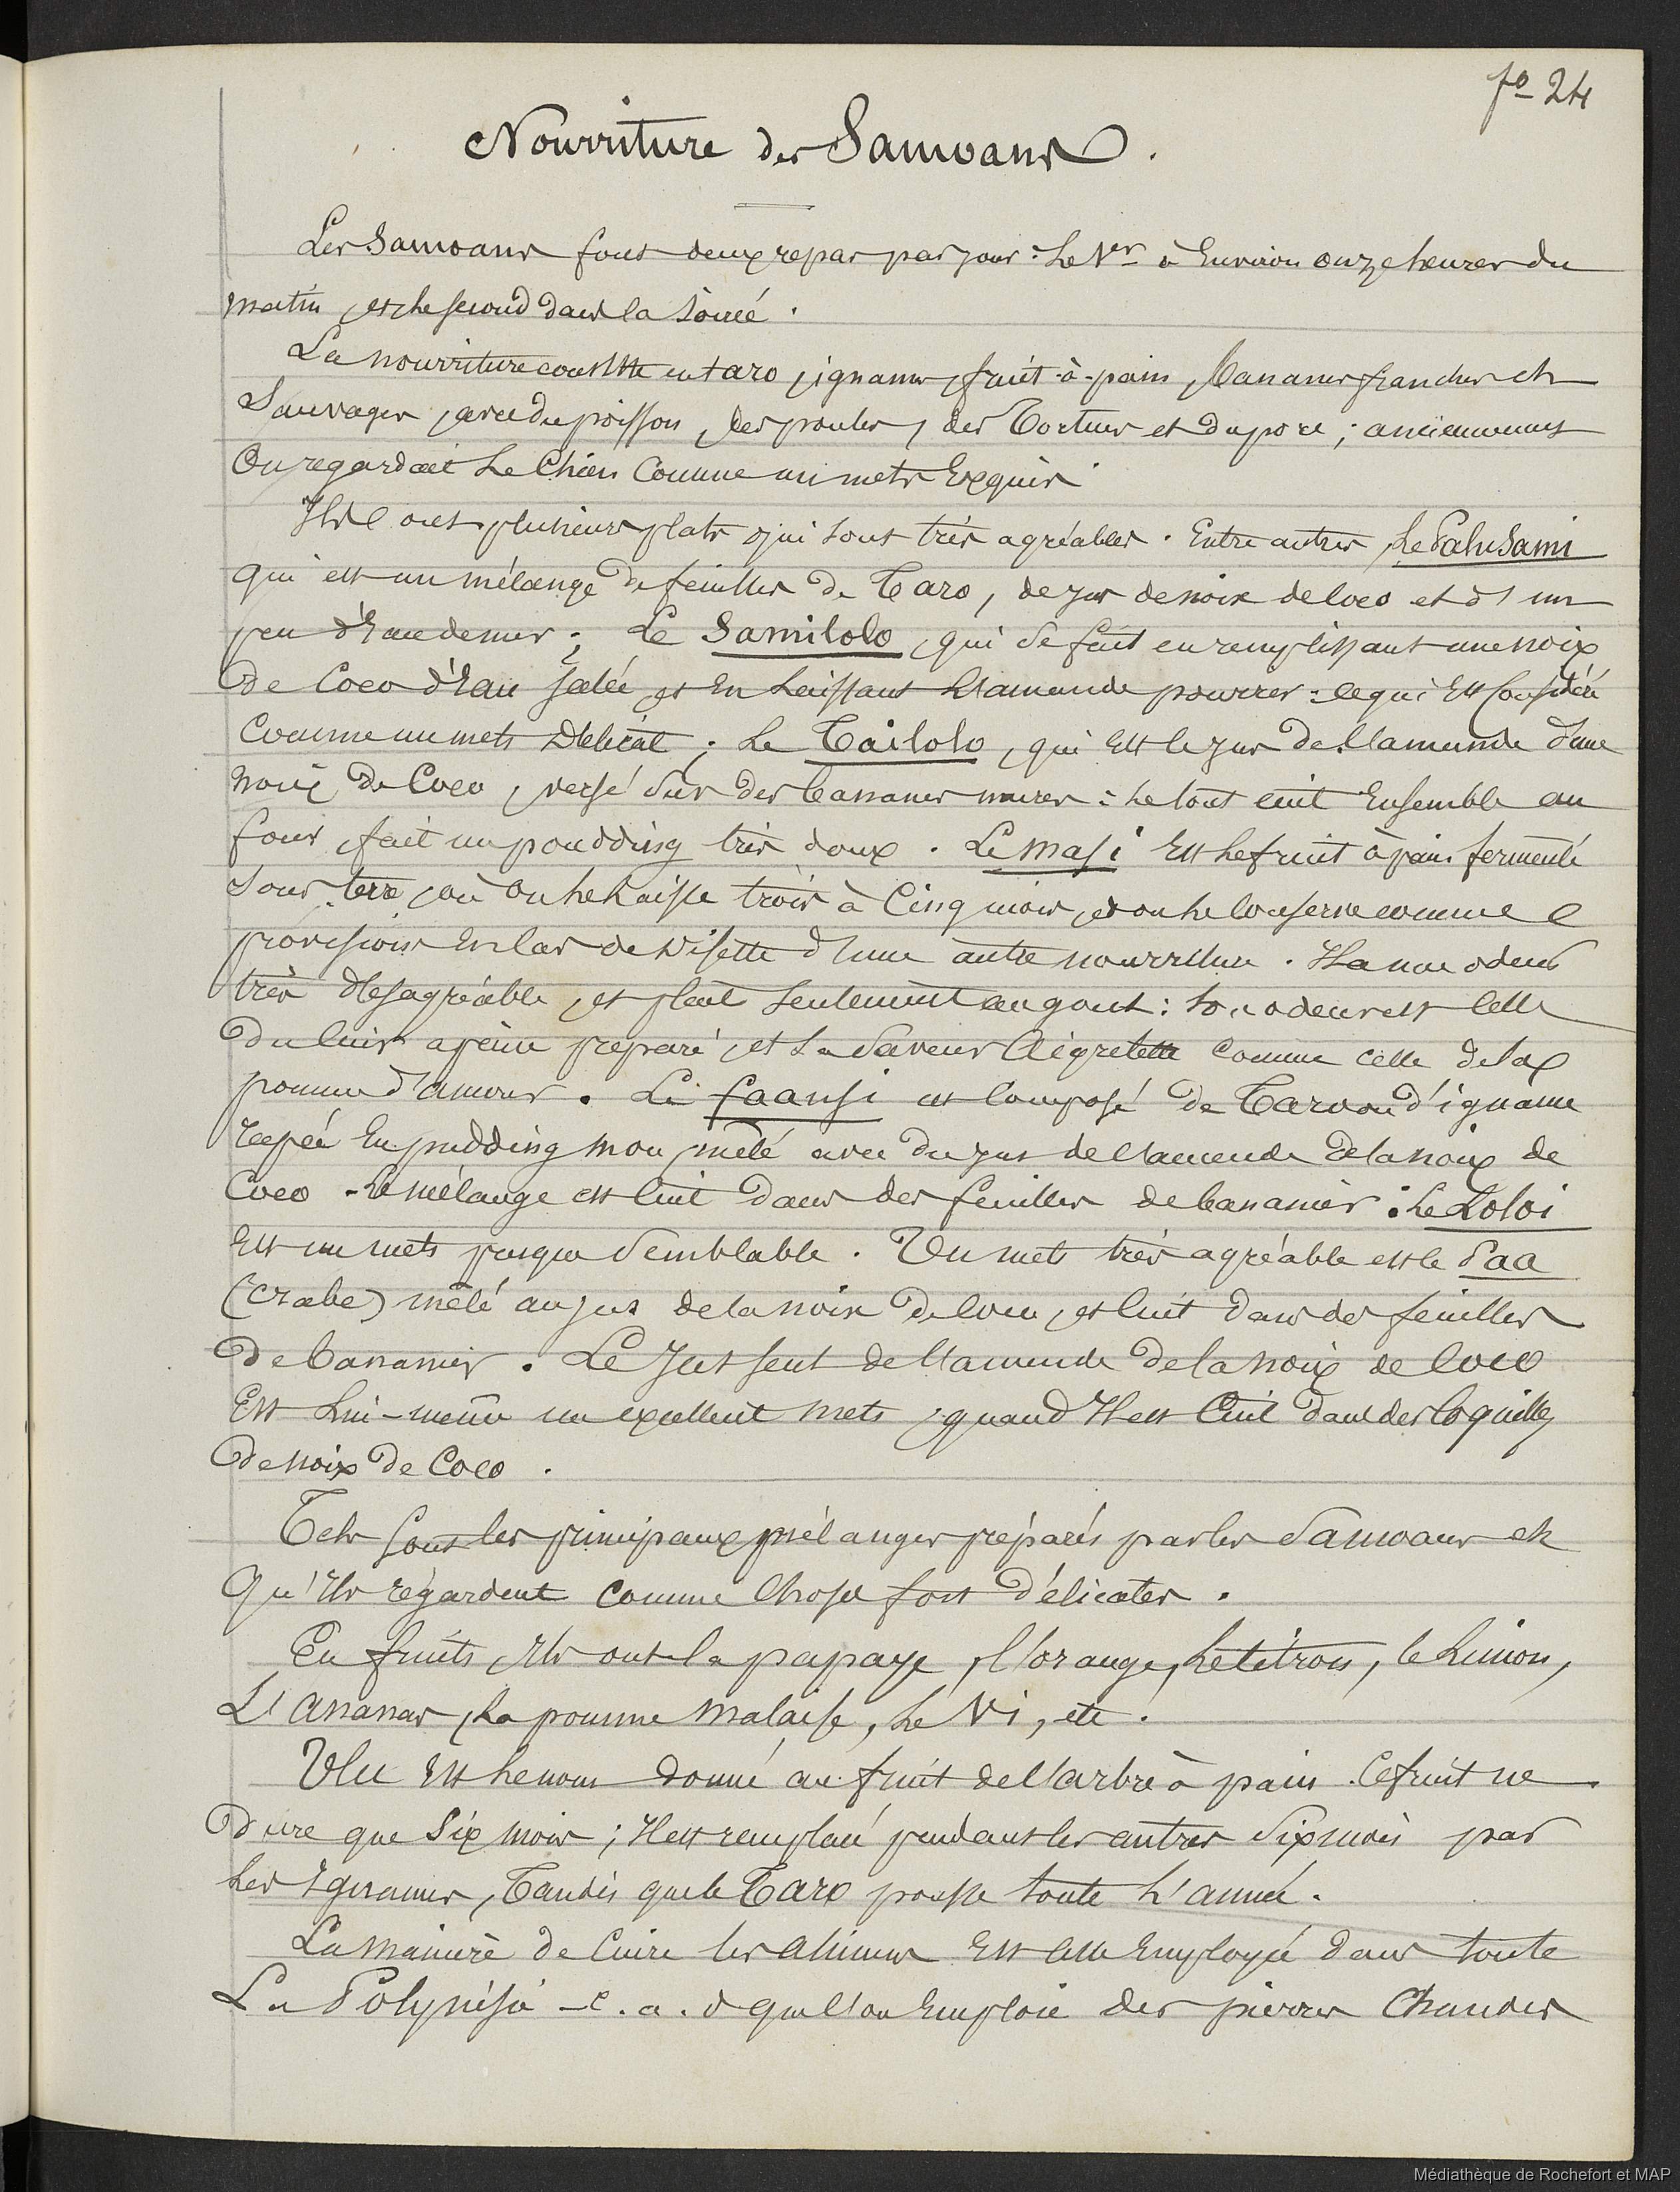 fo 24
Nourriture des Samoans.
Les Samoans font deux repas par jour : le 1er à Environ onze heures du
matin, et le second dans la soirée.
La nourriture consiste en taro, ignames, fruit-à-pain, bananes franches et
Sauvages, avec du poisson, des poules, des Tortues et du porc ; anciennement
On regardait le Chien Comme un mets Exquis.
Ils ont plusieurs plats qui sont très agréables. Entre autres, le PaluSami
qui est un mélange de feuilles de Taro, de jus de noix de Coco et d'un
peu d'Eau de mer ; Le Samilolo, qui se fait en remplissant une noix
de Coco d'Eau salée, et En laissant l'amande pourrer : ce qui Est Considéré
Comme un mets Délicat ; le Tailolo, qui Est le jus de l'amande d'une
noix de Coco, versé sur des bananes mures : le tout cuit Ensemble au
four, fait un poudding très doux. Le masi Est le fruit à pain fermenté
sous terre, où On le laisse trois à Cinq mois, et on le Conserve comme
provision En Cas de Disette d'une autre nourriture. Il a une odeur
très désagréable, et plait seulement au gout : son odeur est Celle
du Cuir à peine préparé, et sa saveur Aigrelette Comme celle de la
pomme d'amour. Le faausi est Composé de Taro ou d'igname
rapée En pudding mou, mêlé avec du jus de l'amende de la noix de
Coco. Le mélange est Cuit dans des feuilles de bananier. Le Loloi
Est un mets presque Semblable. Un mets très agréable est le Paa
(crabe) mêlé au jus de la noix de Coco, et Cuit dans des feuilles
de bananier. Le Jus seul de l'amende de la noix de Coco
Est lui-même un excellent mets, quand Il est Cuit dans des Coquilles
de noix de Coco.
Tels sont les principaux mélanges préparés par les Samoans et
Qu'Ils regardent Comme Chose fort délicates.
En fruits, Ils ont la papaye, l'orange, le citron, le limon,
L'Ananas, la pomme malaise, le Vi, etc.
Ulu Est le nom donné au fruit de l'arbre à pain. Ce fruit ne
Dure que Six mois ; Il est remplacé pendant les autres Six mois par
les Ignames, Tandis que le Taro pousse toute l'année.
La manière de Cuire les aliments Est celle Employée dans toute
La Polynésie - c. a. d que l'on Emploie des pierres Chaudes
Médiathèque de Rochefort et MAP